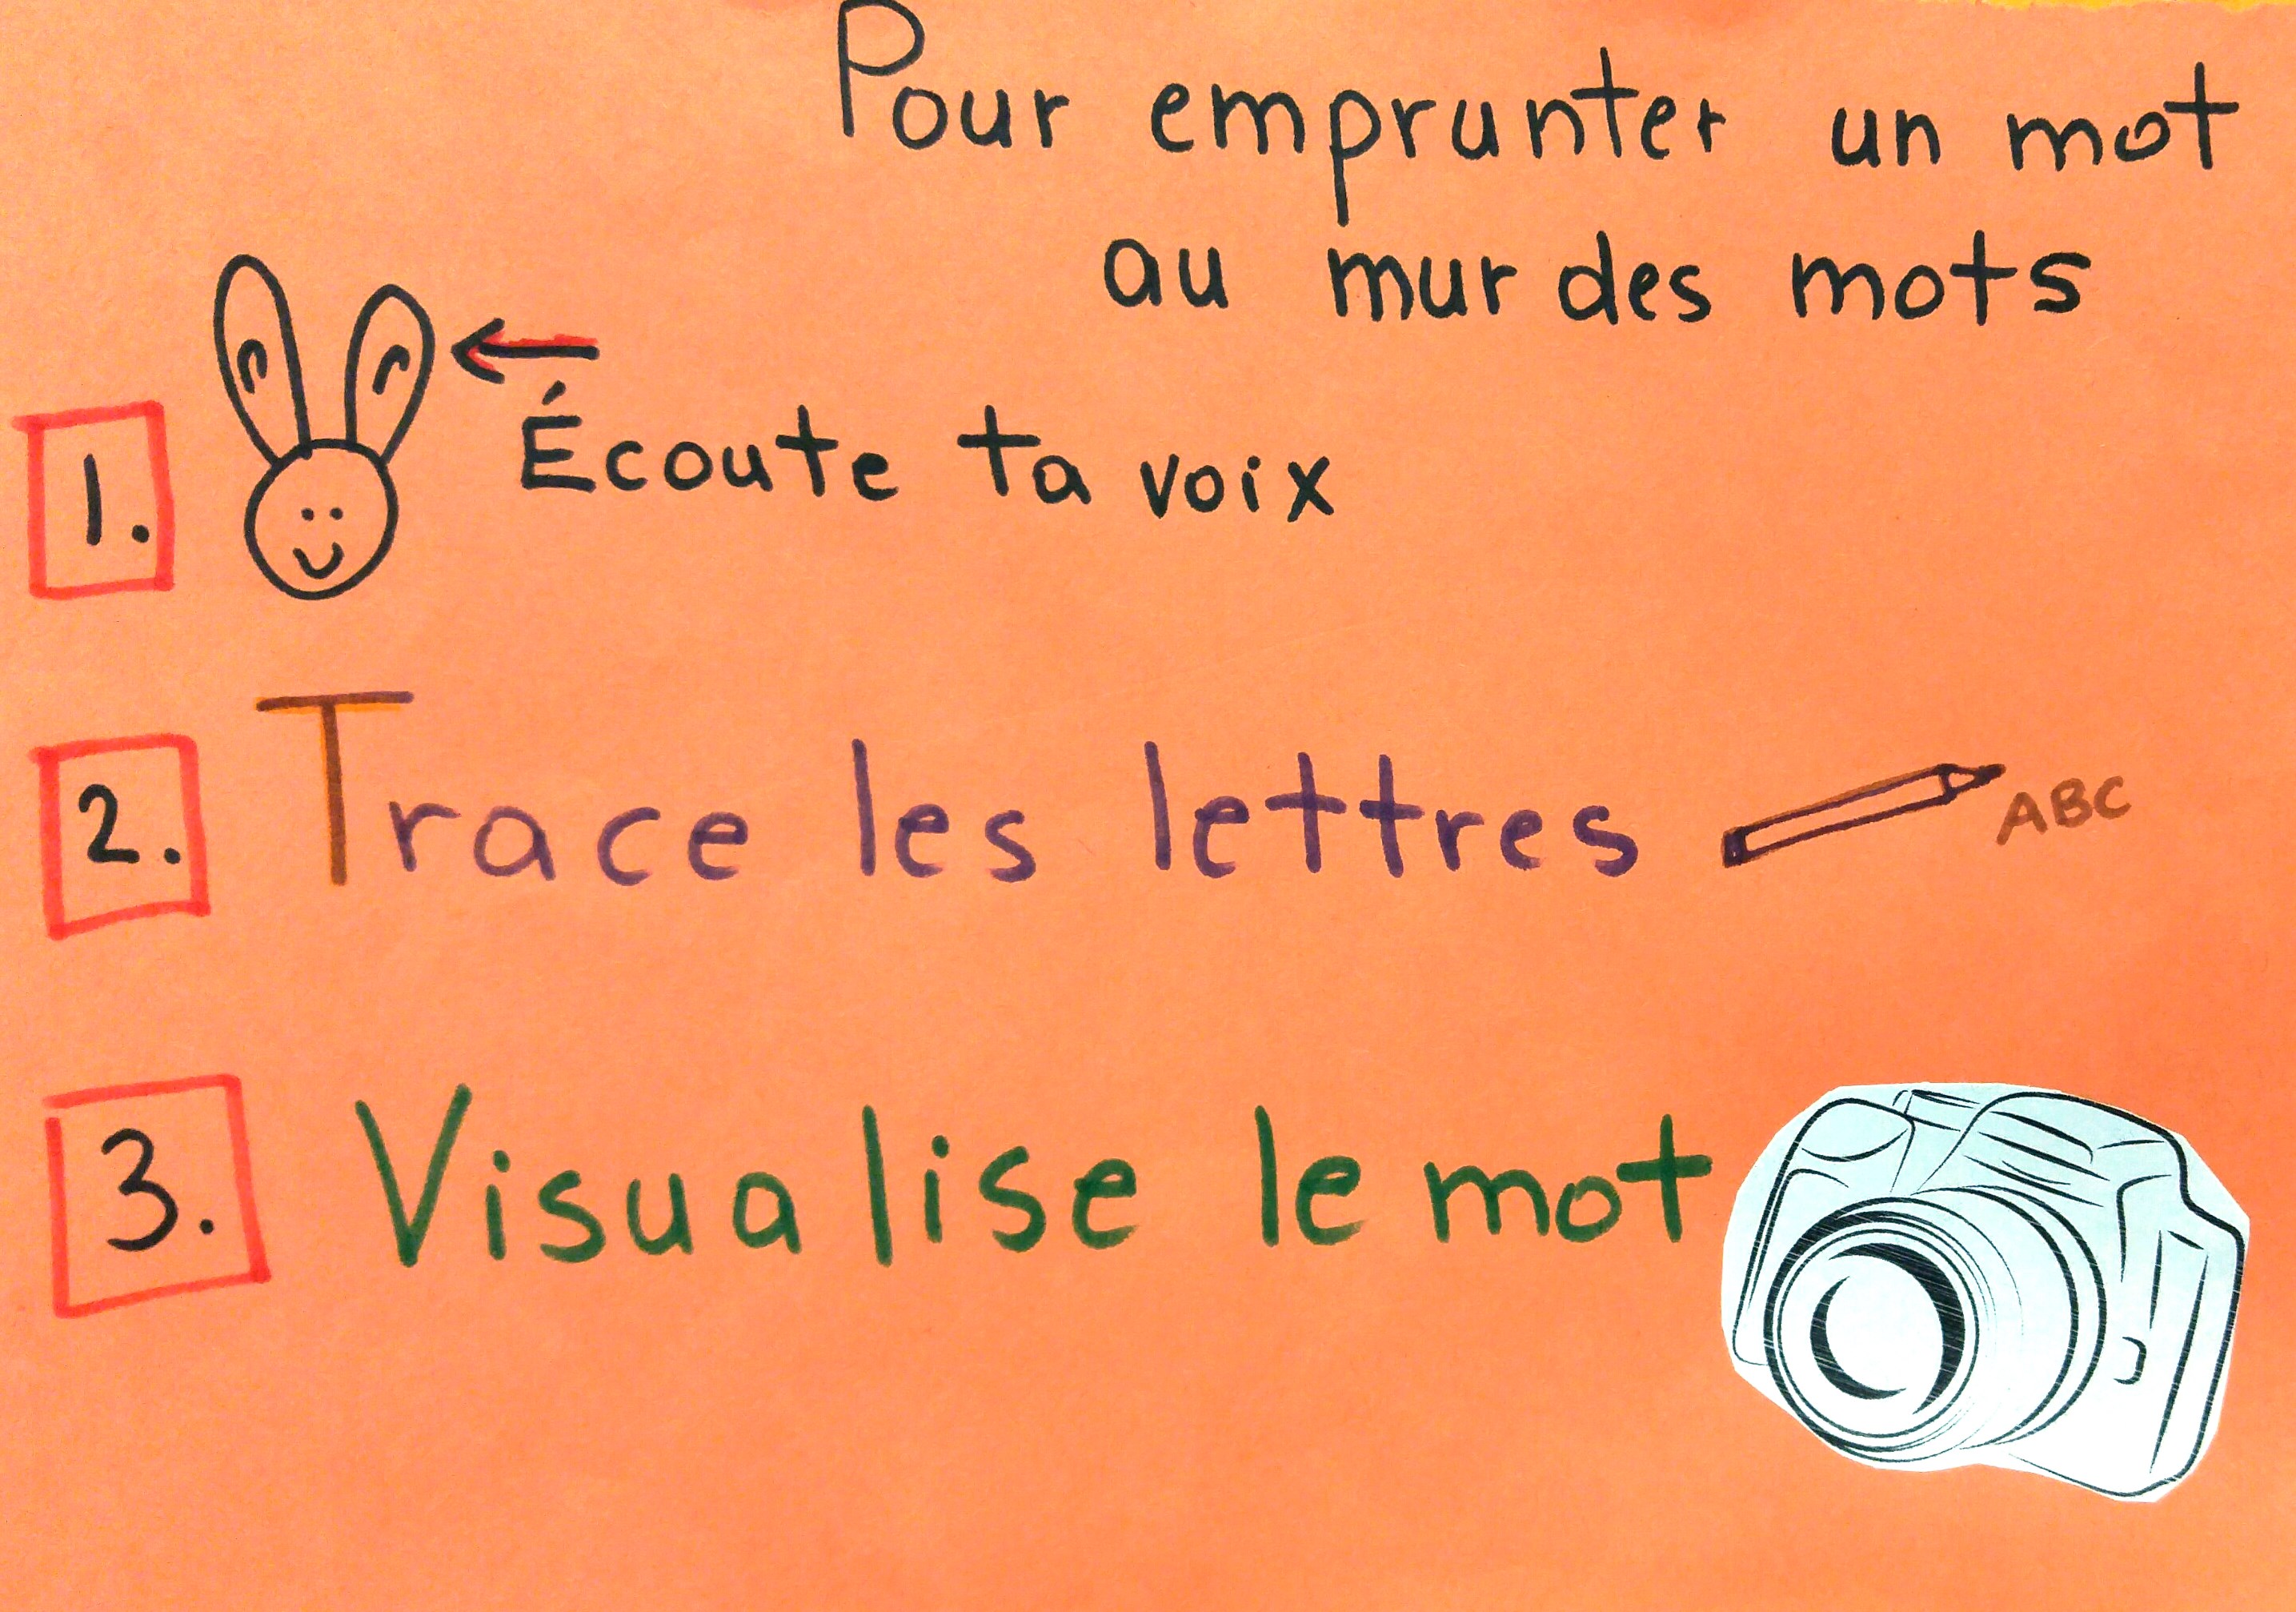 Pour emprunter un mot
au mur des mots
1. Écoute ta voix
2. Trace les lettres ABC
3. Visualise le mot